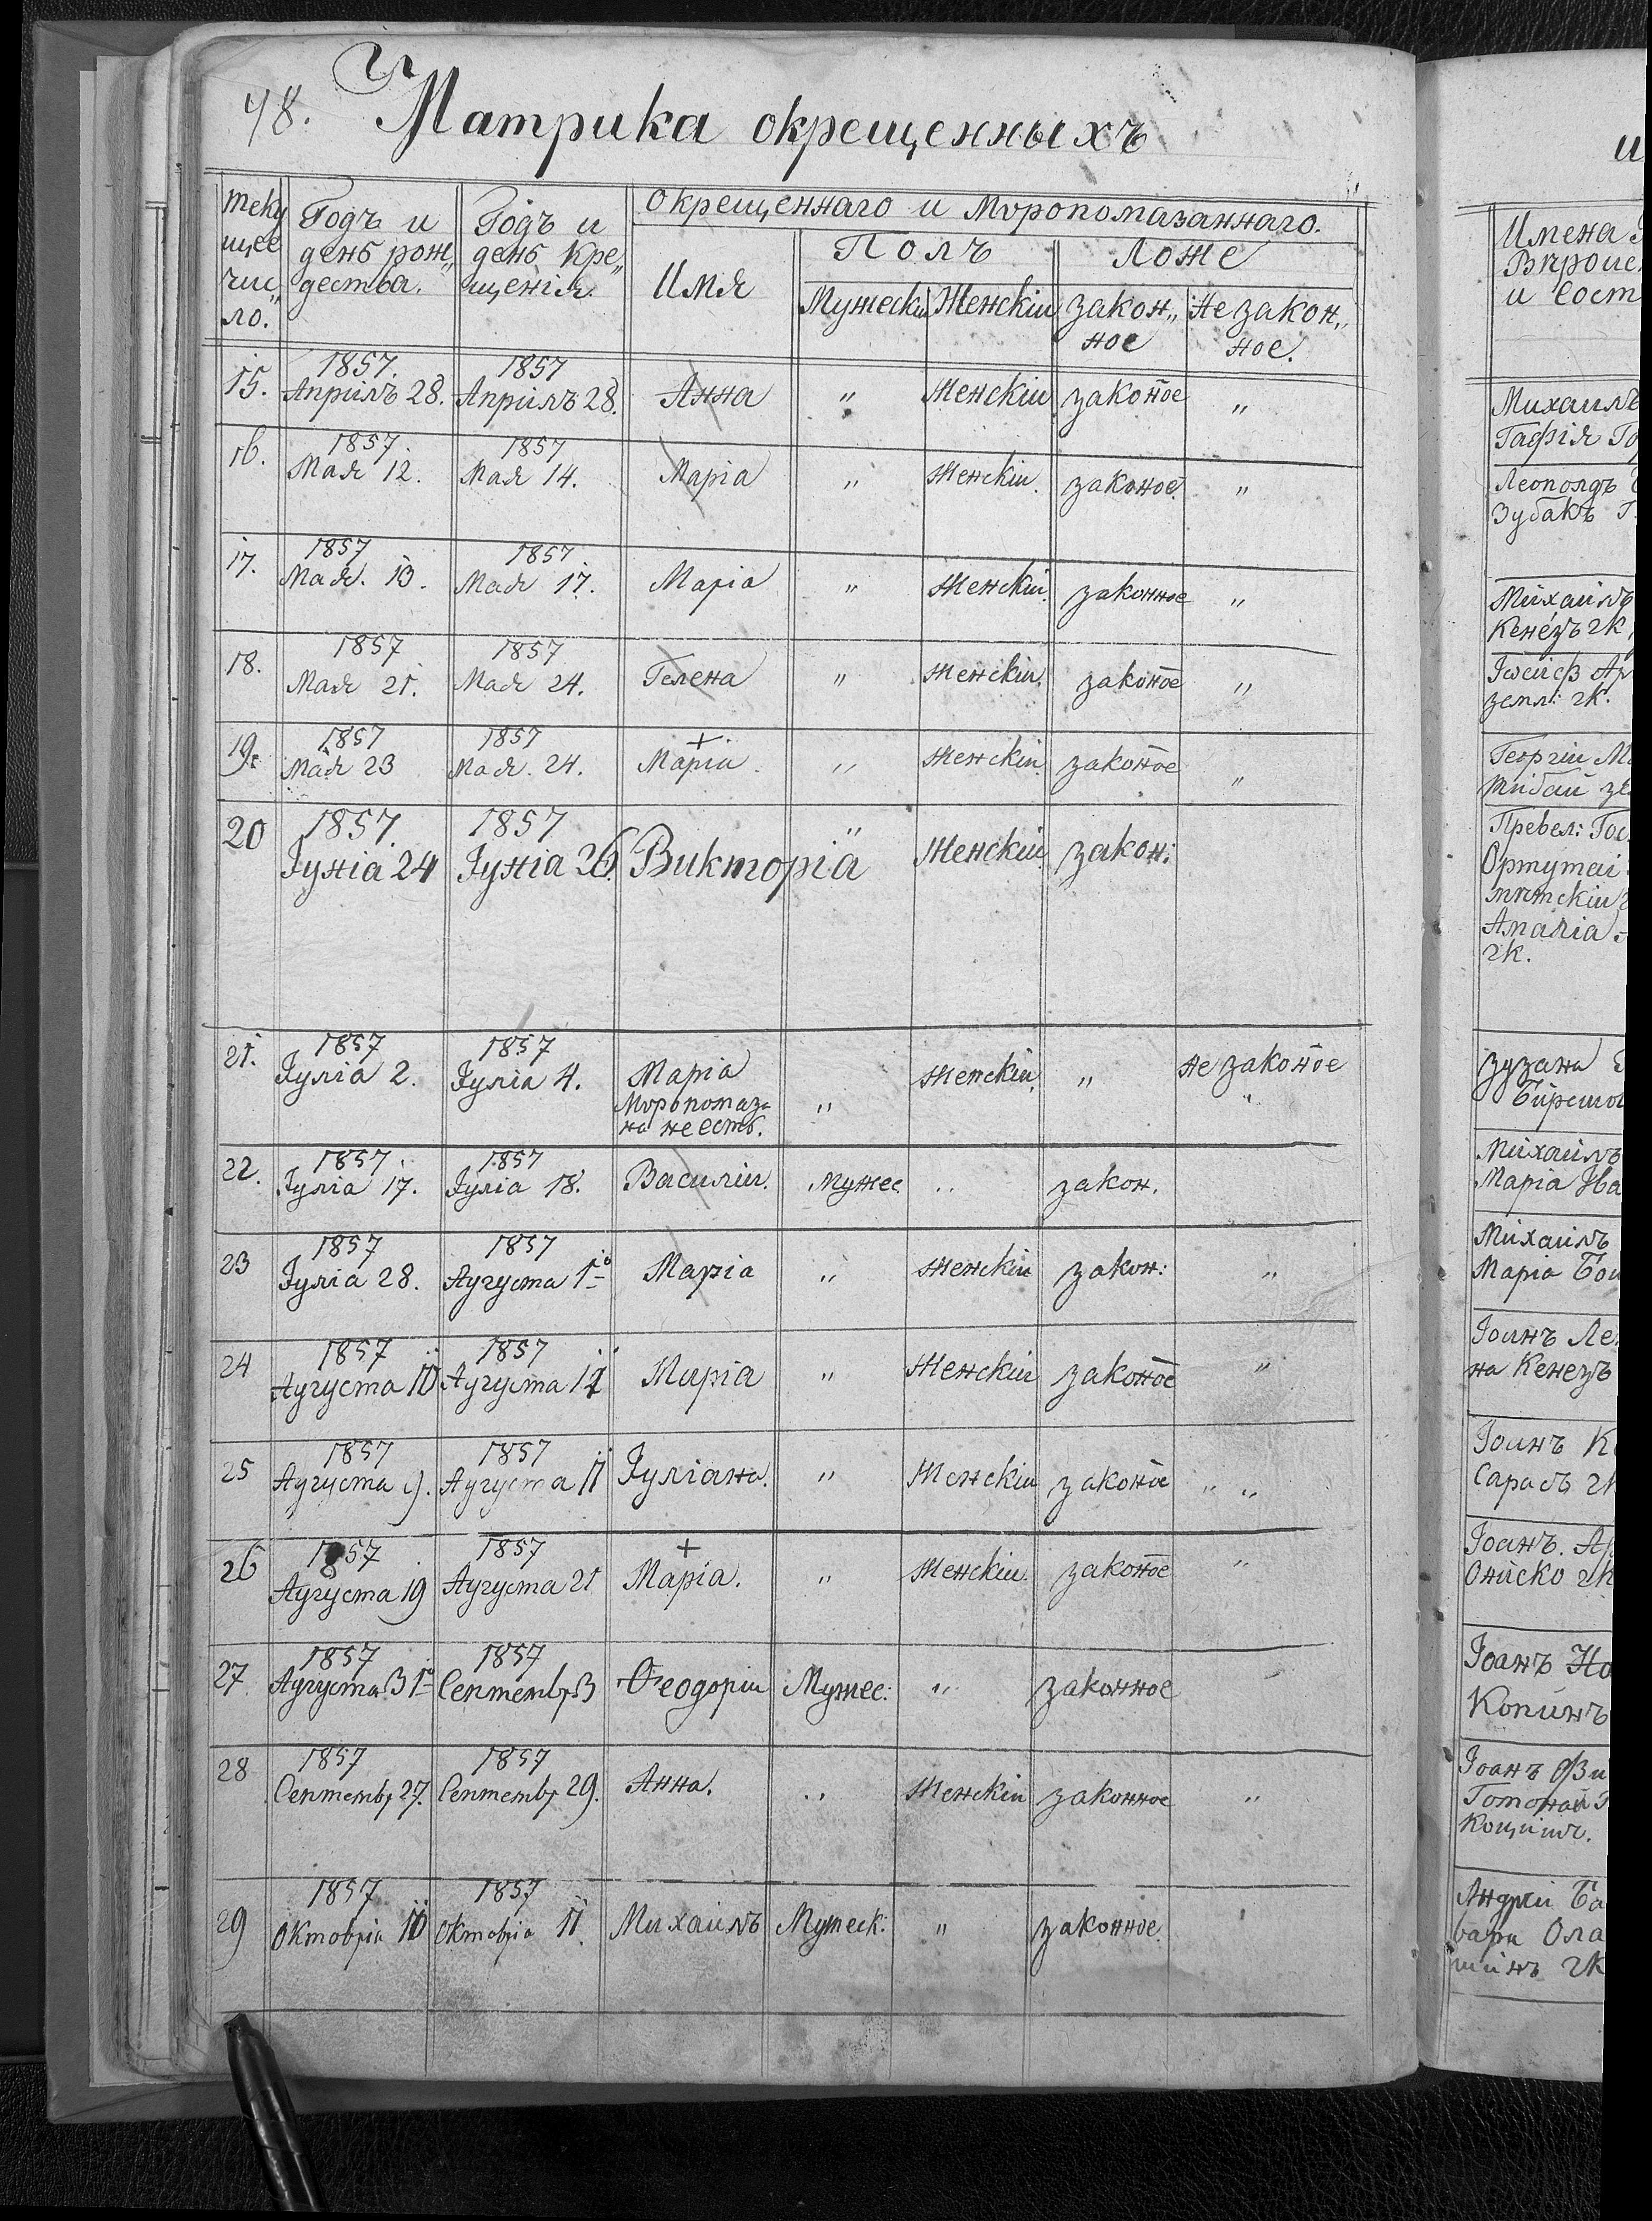 48. Матрика окрещенныхъ
теку
щее
чис„
ло.
Годъ и
день рож„
дества.
Годъ и
день кре„
щенія.
окрещеннаго и Мѵропомазаннаго.
Имя
Полъ
Ложе
Мужескій Женскій закон„
ное
Не закон„
ное.
15. 1857. Апрілъ 28. 1857 Апрілъ 28. Анна „ Женскій законое „
16. 1857 Мая 12. 1857 Мая 14. Маріа „ Женскій. законое. „
17. 1857 Мая. 13. 1857 Мая 17. Маріа „ Женскій. законное „
18. 1857 Мая 21. 1857 Мая 24. Гелена „ Женскій. законое „
19. 1857 Мая 23 1857 Мая. 24. + Маріа. „ Женскій. законое „
20 1857. Іуніа 24 1857 Іуніа 26. Викторіа „ Женскій. закон:
21. 1857 Іуліа 2. 1857 Іуліа 4. Маріа „ Женскій. „ не законое
Мѵропомаза
на не есть.
22. 1857 Іуліа 17. 1857 Іуліа 18. Василій. Мужес „ закон.
23 1857 Іуліа 28. 1857 Аугуста 1º Маріа „ Женскій закон: „
24 1857 Аугуста 10 1857 Аугуста Маріа „ Женскій законое „
25 1857 Аугуста 9. 1857 Аугуста 11 Іуліана. „ Женскій законое „ „
26 1857 Аугуста 19 1857 Аугуста 21 + Маріа. „ Женскій. законое „
27 1857 Аугуста 31 1857 Септемвр 3 Ѳеодорій Мужес: „ законное
28 1857 Септемвр 27. 1857 Септемвр 29. Анна. „ Женскій законное „
29 1857 Октовріа 10 1857 Октовріа 11. Михаилъ Мужеск: „ законное.
и
Имена
и Сост
Михаилъ
Гафія
Леополдъ
Зубакъ
Михаилъ
Кенезъ гк
Іѡсифъ
земл: гк.
Георгій
тибай
Превел:
Ортутаі
Амаліа
гк.
Зузана
Михаилъ
Маріа Ива
Михаилъ
Маріа
Іоанъ
на Кенезъ
Іоанъ
Іоанъ.
Ониско гк
Іоанъ
Копинъ
Іоанъ
Андрей Ба